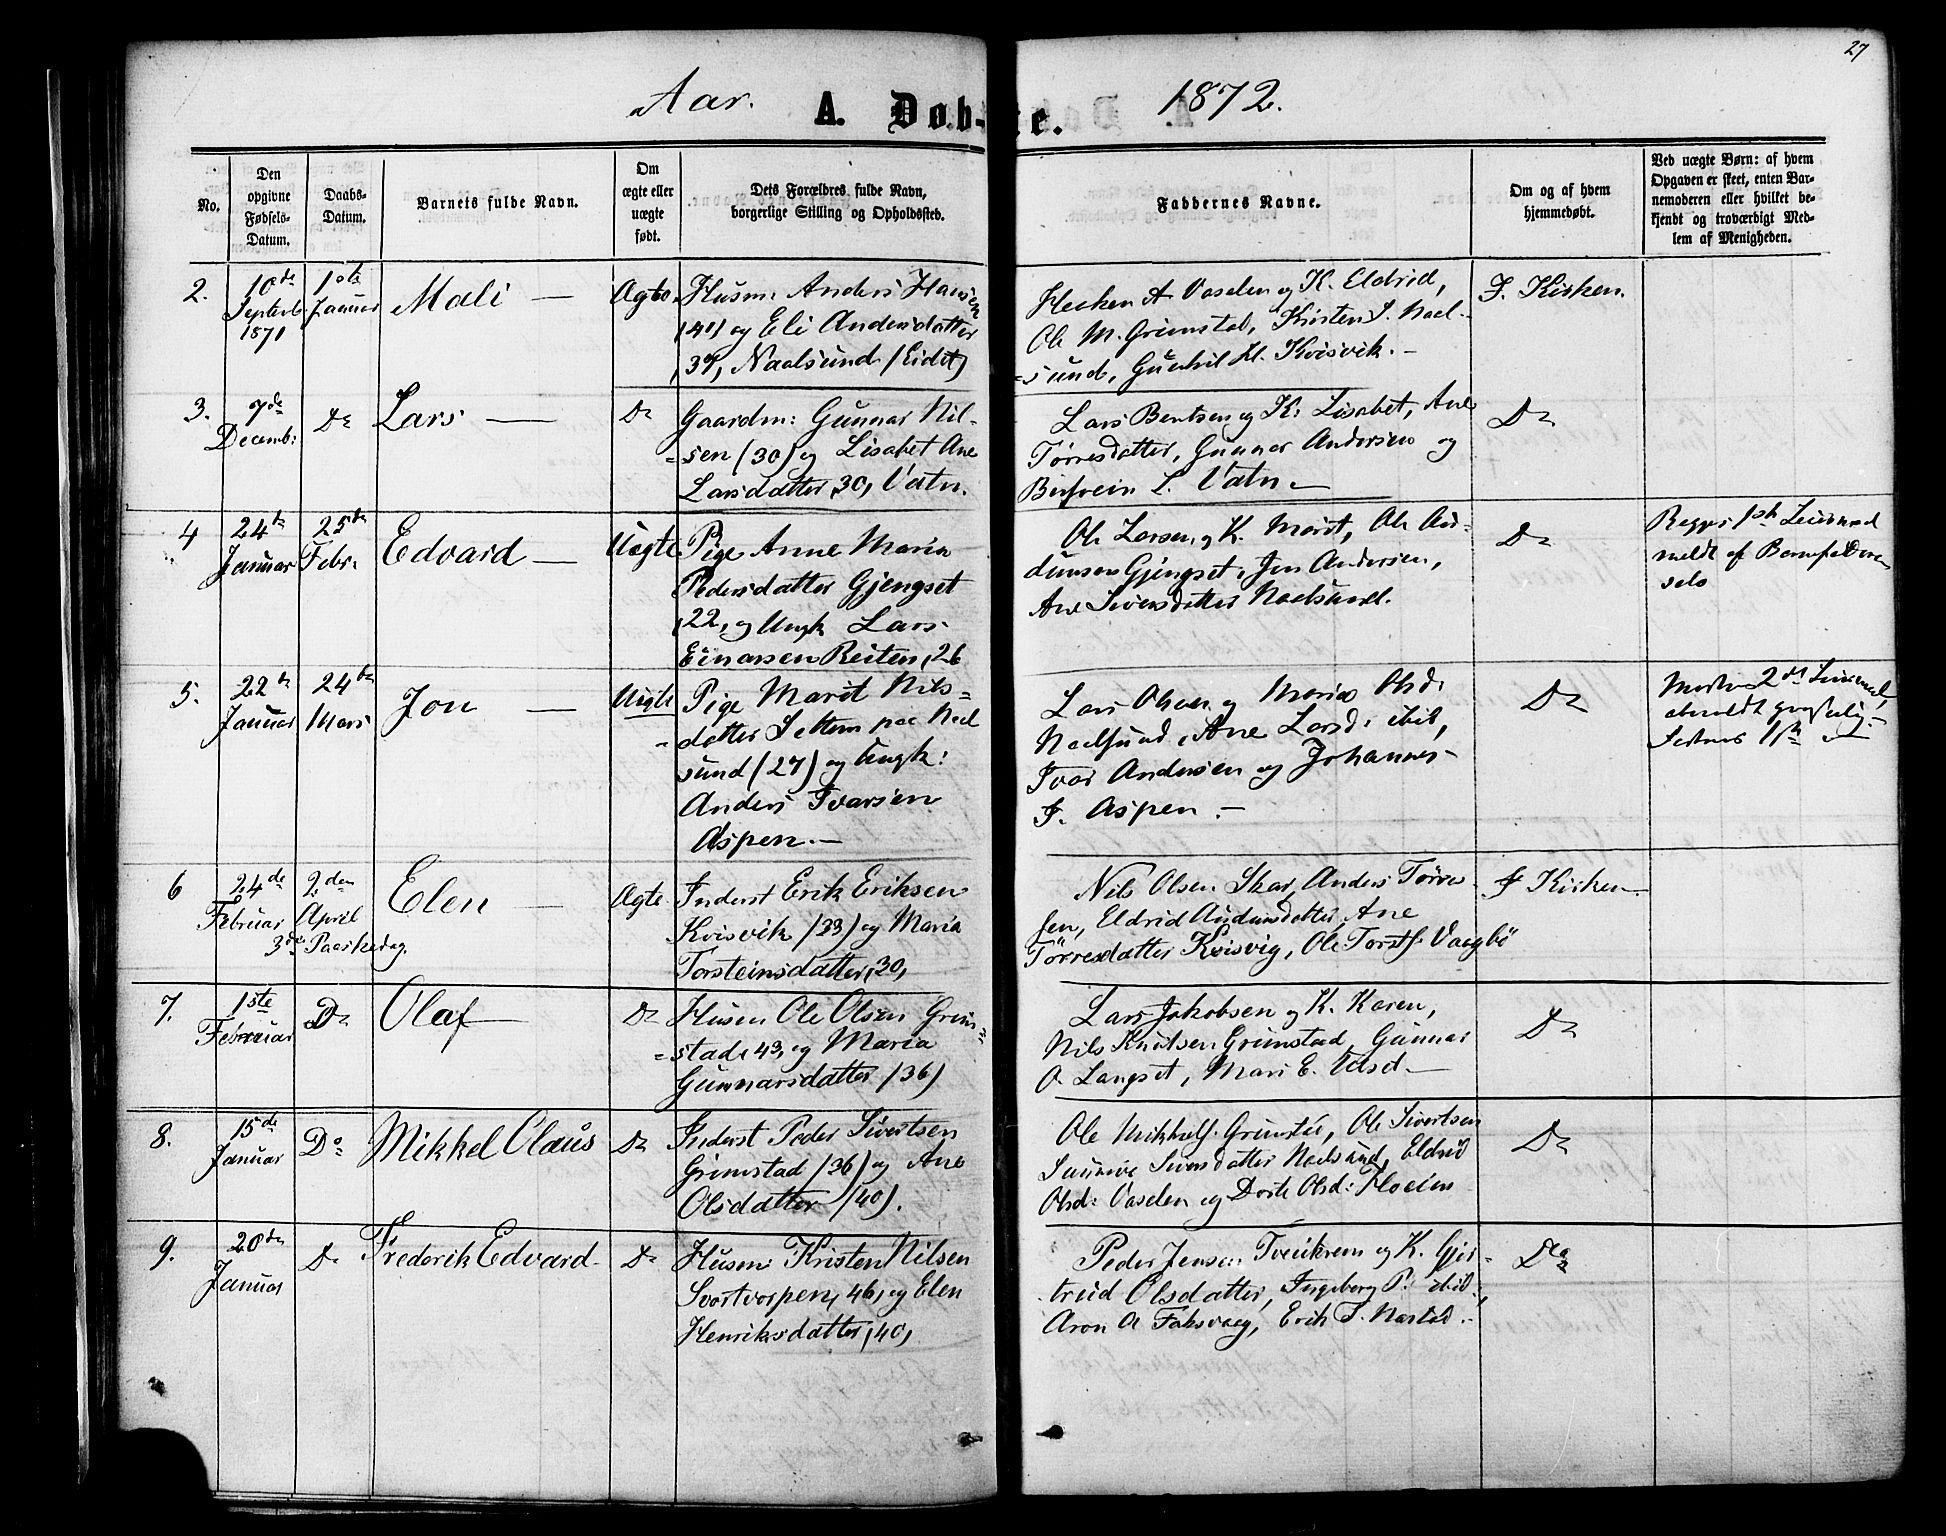 27
Aar. A. Døb-te. 1872.
No.
Den
opgivne
Fødsels-
Datum.
Daabs-
Datum.
Barnets fulde Navn.
Om
ægte eller
uægte
født.
Dets Forældres fulde Navn,
borgerlige Stilling og Opholdssted.
Faddernes Navne.
Om og af hvem
hjemmedøbt.
Ved uægte Børn: af hvem
Opgaven er skeet, enten Bar-
nemoderen eller hvilket be-
kjendt og troværdigt Med-
lem af Menigheden.
2.
10de
Septemb.
1871
1ste
Januar
Mali —
Ægte
Husm: Anders Hansen
(40) og Eli Andersdatter
39, Naalsund (Eidet)
A Vaselen og K. Eldrid,
Ole M. Grimstad, Kristen I. Naal-
=sund, Gunhil H. Kvisvik. —
I. Kirken.
3.
7de
Decemb:
Do
Lars —
Do
Gaardm: Gunnar Nil-
=sen (30) og Lisabet Ane
Larsdatter, 30, Vatn.
Lars Bentsen og K. Lisabet, Ane
Tørresdatter, Gunnar Andersen og
L. Vatn —
Do
4
24de
Januar
25de
Febr.
Edvard —
Uægte
Pige Anne Maria
Pedersdatter Gjengset
22, og Ungk Lars
Einarsen Reiten, 26
Ole Larsen og K. Marit, Ole An-
dunsen Gjengset, Jon Andersen,
Ane Siversdatter Naalsund.
Do
Begges 1ste Leiermaal
meldt af Barnefaderen
selv
5.
22de
Januar
24de
Mars
Jon —
Uægte
Pige Marit Nils-
datter Settem paa Naal
sund (27) og Ungk:
Anders Ivarsen
Aspen. —
Lars Olsen og Marias Olsd:
Naalsund, Ane Larsd: ibid,
Ivar Andersen og Johannes
I. Aspen. —
Do
2det Leiermaal,
1ste
6
24de
Februar
2den
April
3die Paaskedag.
Elen —
Ægte
Inderst Erik Eriksen
Kvisvik (33) og Maria
Torsteinsdatter, 30,
Nils Olsen Skar, Anders Tørre-
sen, Eldrid Audunsdatter, Ane
Tørresdatter Kvisvig, Ole Torstf. Vaagbø
I Kirken
7.
1ste
Februar
Do
Olaf
Do
Husm Ole Olsen Grim-
=stad, 43, og Maria
Gunnarsdatter (36)
Lars Jakobsen og K. Karen,
Nils Knutsen Grimstad, Gunnar
O. Langset, Mari E. Udset —
Do
8.
15de
Januar
Do
Mikkel Olaus
Do
Inderst Peder Sivertsen
Grimstad (36) og Ane
Olsdatter (40).
Ole Mikkels. Grimstad, Ole Sivertsen
Siversdatter Naalsund, Eldrid
Olsd: Vaselen og Dorte Olsd: Floeim
Do
9.
20de
Januar
Do
Frederik Edvard
Do
Husm: Kristen Nilsen
Svortvorpen, 46, og Elen
Henriksdatter, 40,
Peder Jensen Tveikrem og K. Gjer-
trud Olsdatter, Ingeborg P. ibid.,
Aron A Foksvaag, Erik T. Nastad.
Do